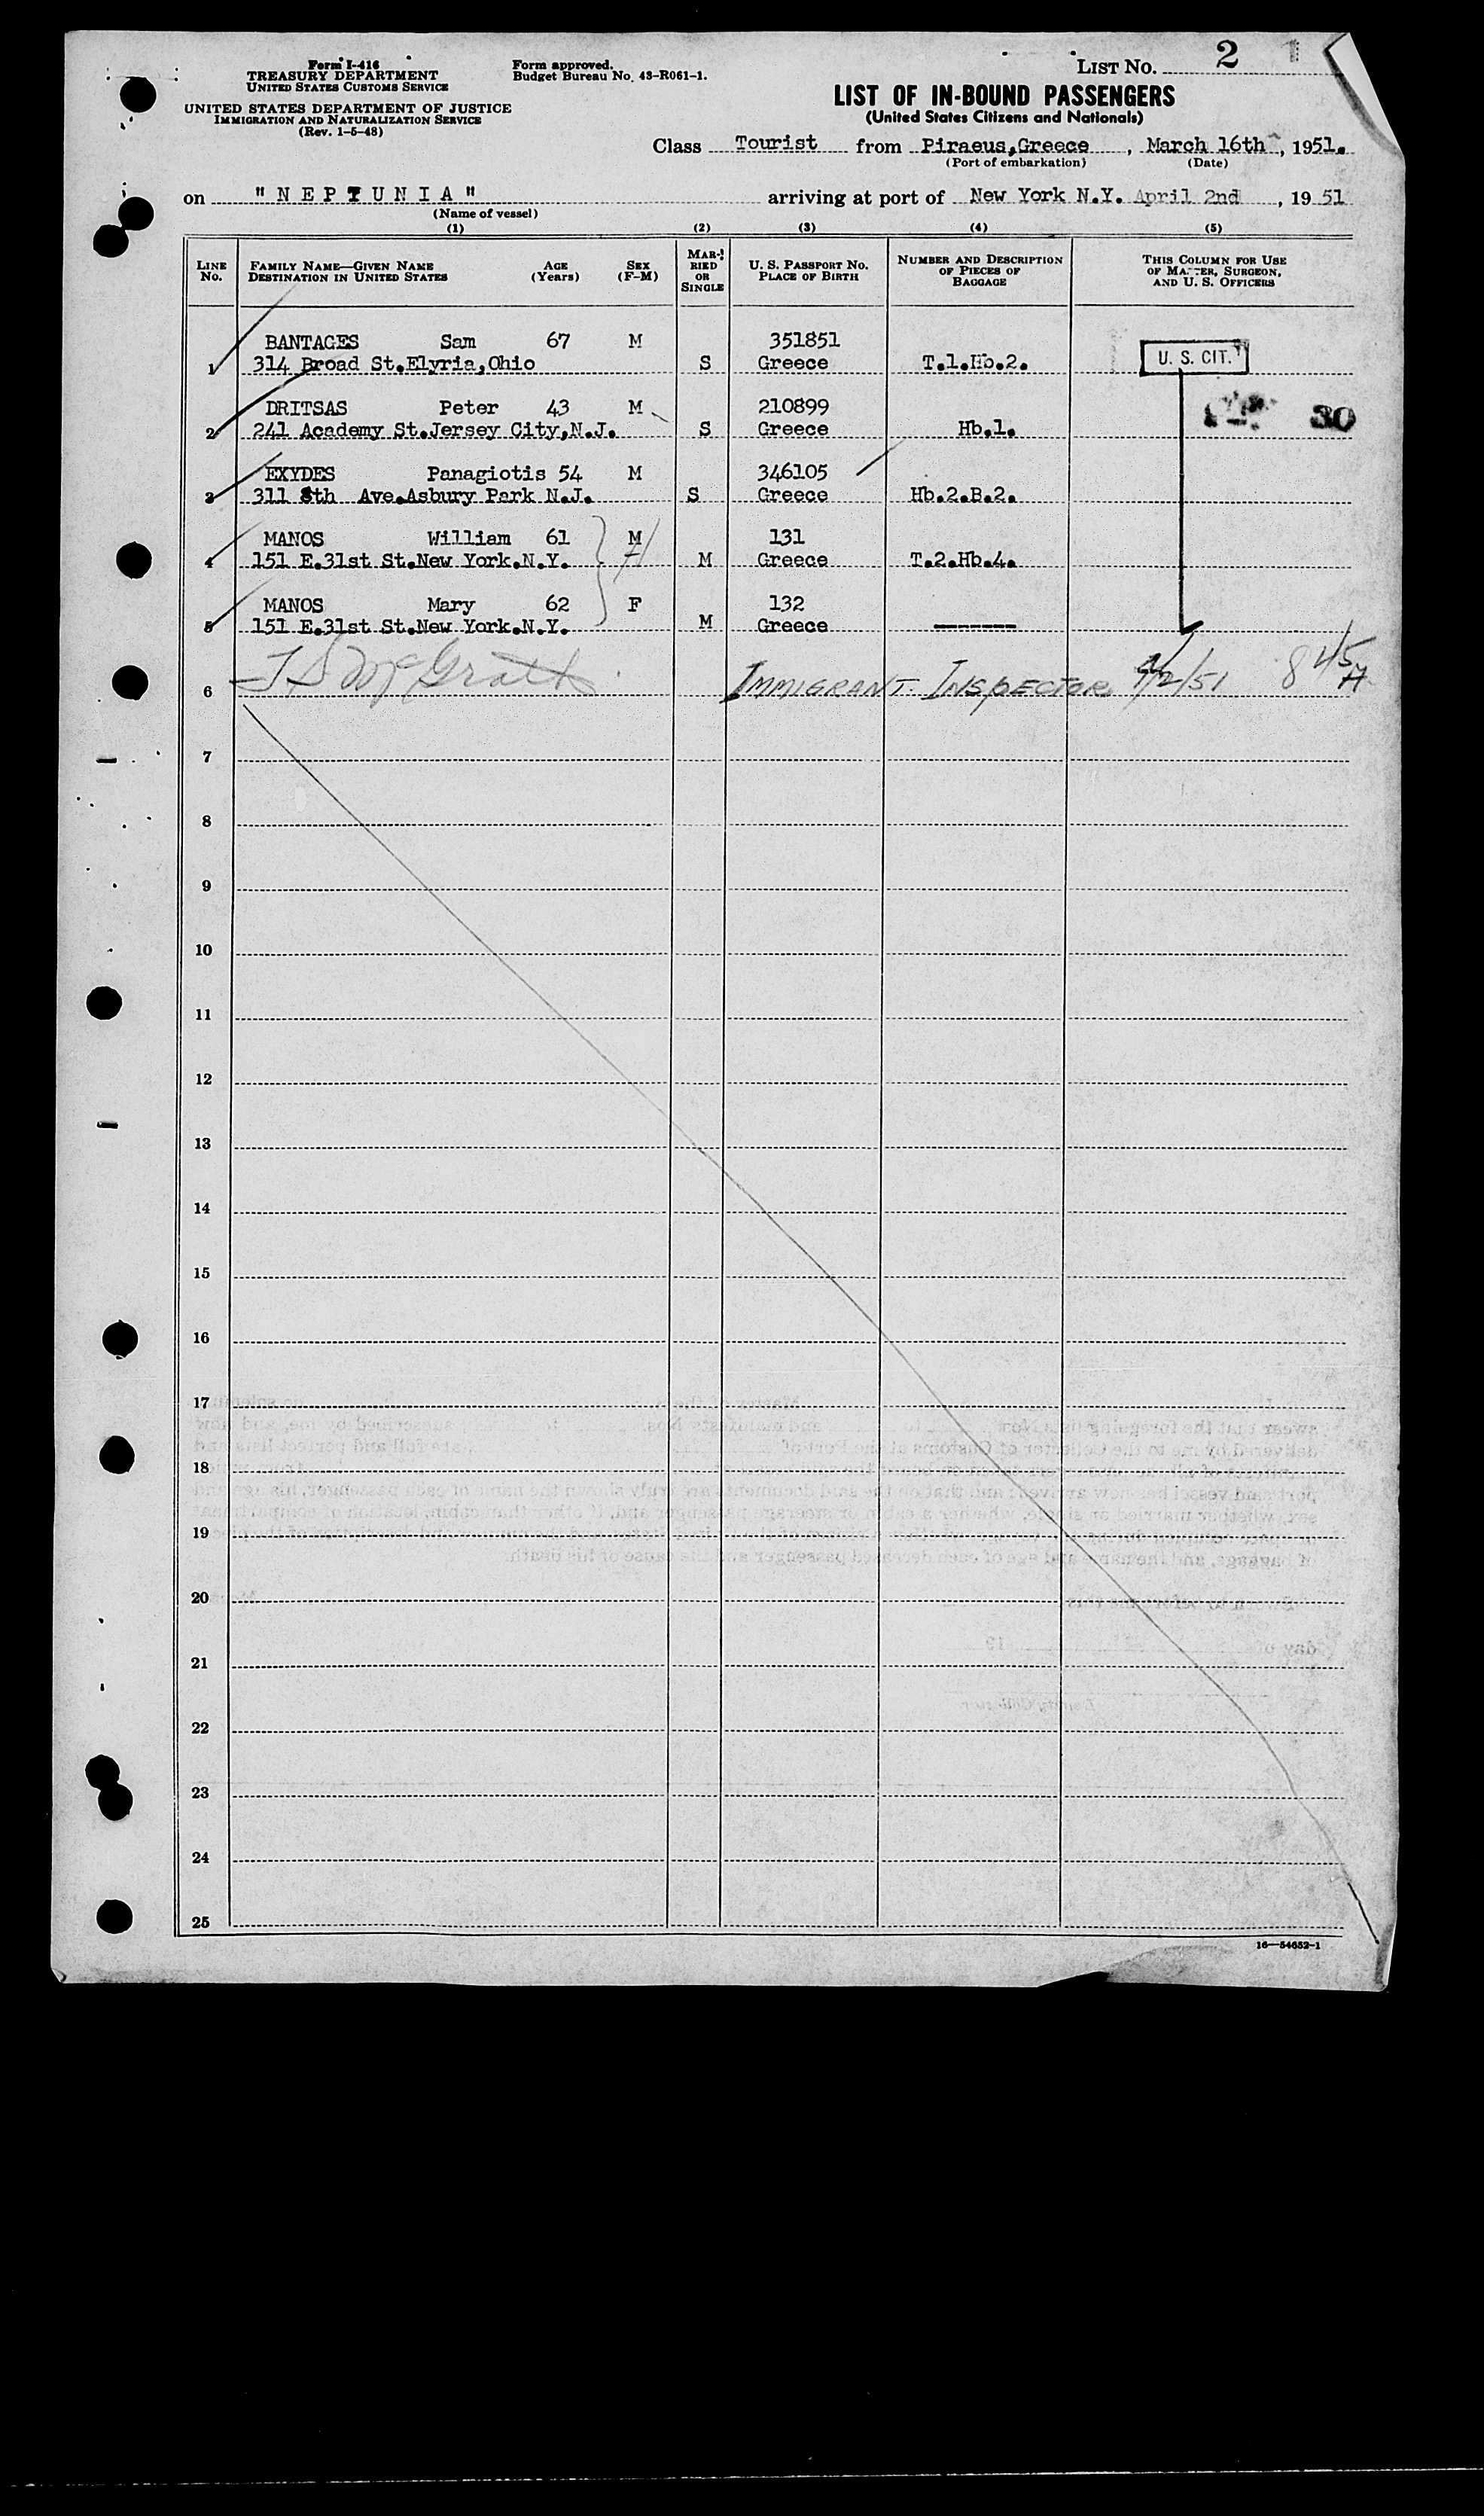 Form I-416
TREASURY DEPARTMENT
UNITED STATES CUSTOMS SERVICE
UNITED STATES DEPARTMENT OF JUSTICE
IMMIGRATION AND NATURALIZATION SERVICE
(Rev. 1-5-48)
Form approved.
Budget Bureau No. 43-R061-1.
LIST NO. 2
LIST OF IN-BOUND PASSENGERS
(United States Citizens and Nationals)
Class Tourist from Piraeus,Greece , March 16th , 1951.
(Port of embarkation) (Date)
on "NEPTUNIA" arriving at port of New York N.Y. April 2nd , 19 51
(Name of vessel)
(1) (2) (3) (4) (5)
LINE No. FAMILY NAME—GIVEN NAME DESTINATION IN UNITED STATES AGE (Years) SEX (F-M) MARRIED OR SINGLE U. S. PASSPORT NO. PLACE OF BIRTH NUMBER AND DESCRIPTION OF PIECES OF BAGGAGE THIS COLUMN FOR USE OF MASTER, SURGEON, AND U. S. OFFICERS
BANTAGES Sam 67 M 351851
1 314 Broad St.Elyria,Ohio S Greece T.1.Hb.2. U. S. CIT.
DRITSAS Peter 43 M 210899 30
2 241 Academy St.Jersey City,N.J. S Greece Hb.1.
EXYDES Panagiotis 54 M 346105
3 311 8th Ave.Asbury Park N.J. S Greece Hb.2.B.2.
MANOS William 61 M 131
4 151 E.31st St.New York.N.Y. M Greece T.2.Hb.4.
MANOS Mary 62 F 132
5 151 E.31st St.New York.N.Y. M Greece -------
6 J S McGrath IMMIGRANT INSPECTOR 4/2/51 845 A
7
8
9
10
11
12
13
14
15
16
17
18
19
20
21
22
23
24
25
16—54652-1